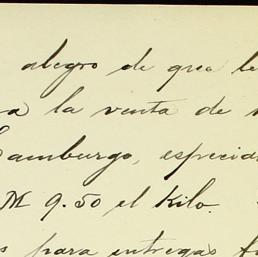 alegro de que le
a la venta de
Hamburgo, especia
M 9.50 el kilo.
para entregas